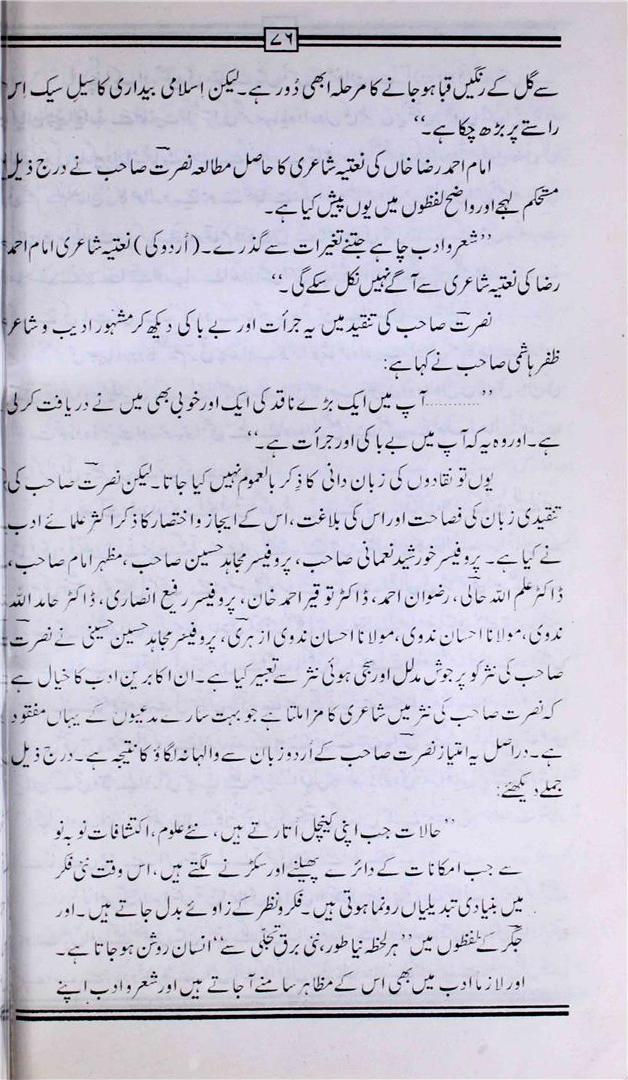 ۷۶
سے گل کے رنگیں قبا ہو جانے کا مرحلہ ابھی دُور ہے۔ لیکن اسلامی بیداری کا سیلِ سبک اِس
راستے پر بڑھ چکا ہے۔‘‘
امام احمد رضا خاں کی نعتیہ شاعری کا حاصل مطالعہ نصرتؔ صاحب نے درج ذیل
مستحکم لہجے اور واضح لفظوں میں یوں پیش کیا ہے۔
’’شعر و ادب چاہے جتنے تغیرات سے گذرے۔ (اُردو کی) نعتیہ شاعری امام احمد
رضا کی نعتیہ شاعری سے آگے نہیں نکل سکے گی۔‘‘
نصرتؔ صاحب کی تنقید میں یہ جرأت اور بے باکی دیکھ کر مشہور ادیب و شاعر
ظفر ہاشمی صاحب نے کہا ہے:
’’............آپ میں ایک بڑے ناقد کی ایک اور خوبی بھی میں نے دریافت کر لی
ہے۔ اور وہ یہ کہ آپ میں بے باکی اور جرأت ہے۔‘‘
یوں تو نقادوں کی زبان دانی کا ذکر بالعموم نہیں کیا جاتا۔ لیکن نصرتؔ صاحب کی
تنقیدی زبان کی فصاحت اور اس کی بلاغت، اس کے ایجاز و اختصار کا ذکر اکثر علمائے ادب
نے کیا ہے۔ پروفیسر خورشید نعمانی صاحب، پروفیسر مجاہد حسین صاحب، مظہر امام صاحب،
ڈاکٹر علیم اللہ حالیؔ، رضوان احمد، ڈاکٹر توقیر احمد خان، پروفیسر رفیع انصاری، ڈاکٹر حامد اللہ
ندوی، مولانا احسان ندوی، مولانا احسان ندوی ازہریؔ، پروفیسر مجاہد حسین حسینی نے نصرتؔ
صاحب کی نثر کو پرجوش مدلل اور سجی ہوئی نثر سے تعبیر کیا ہے۔ ان اکابرین ادب کا خیال ہے
کہ نصرت صاحب کی نثر میں شاعری کا مزا ملتا ہے جو بہت سارے مدعیوں کے یہاں مفقود
ہے۔ دراصل یہ امتیاز نصرتؔ صاحب کے اُردو زبان سے والہانہ لگاؤ کا نتیجہ ہے۔ درج ذیل
جملے دیکھئے:
’’حالات جب اپنی کینچل اتارتے ہیں، نئے علوم، اکتشافات نو بہ نو
سے جب امکانات کے دائرے پھیلنے اور سکڑنے لگتے ہیں، اس وقت نئی فکر
میں بنیادی تبدیلیاں رونما ہوتی ہیں۔ فکر و نظر کے زاوئے بدل جاتے ہیں۔ اور
جگرؔ کے لفظوں میں ’’ہر لحظہ نیا طور، نئی برق تجلّی سے‘‘ انسان روشن ہو جاتا ہے۔
اور لازماً ادب میں بھی اس کے مظاہر سامنے آ جاتے ہیں اور شعر و ادب اپنے